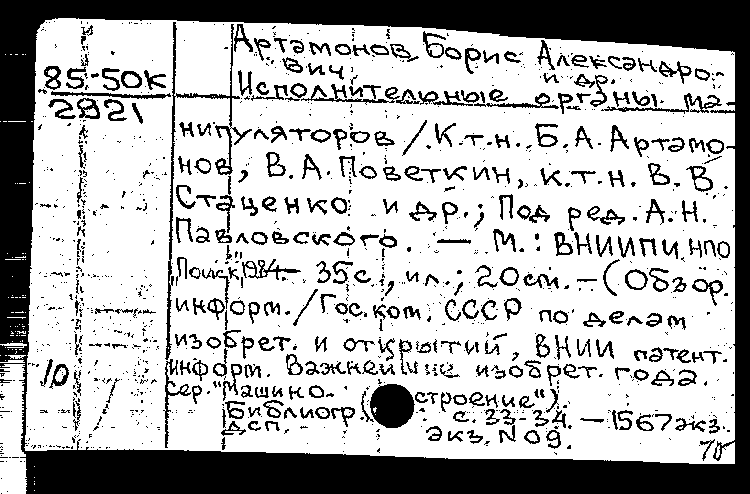 Артамонов Борис Александро-
вич, и др.
85-50К
Исполнительные органы ма-
2821
нипуляторов / К.т.н. Б.А. Артамо-
нов, В.А. Поветкин, к.т.н. В.В.
Стаценко и др.; Под ред. А.Н.
Павловского. — М.: ВНИИПИ, НПО
"Поиск", 1984.— 35с., ил.; 20см.—(Обзор.
информ./Гос.ком. СССР по делам
изобрет. и открытий, ВНИИ патент.
10
информ. Важнейшие изобрет. года.
Сер. "Машино-
строение").
Библиогр.: с. 33-34. — 1567экз.
ДСП. экз. N 09.